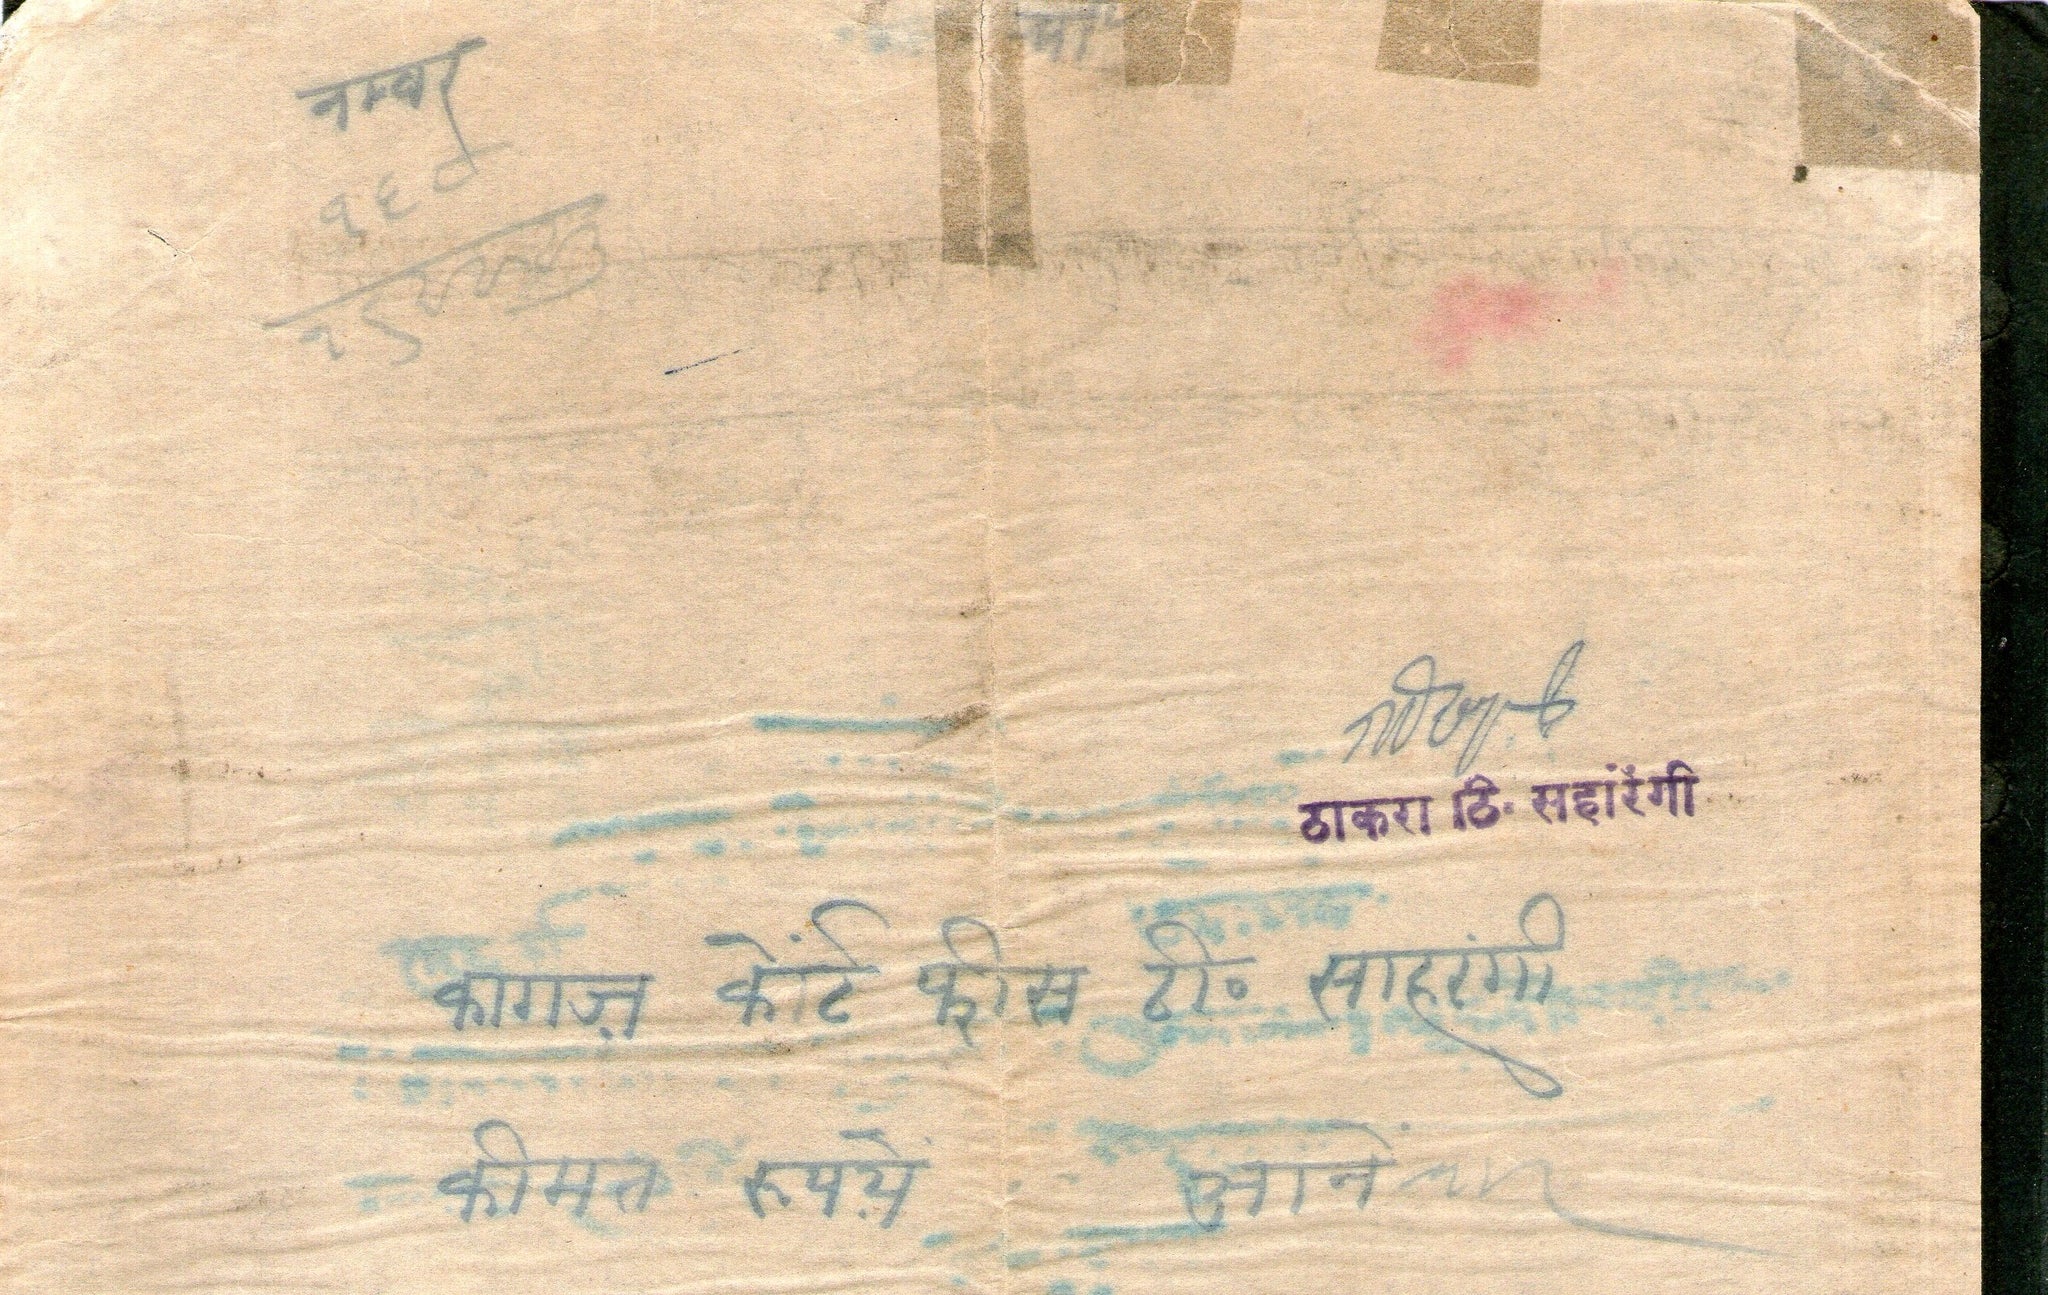 नम्बर
१६०
ठाकरा ठि. सहारंगी
कागज़ कोर्ट फीस टी० साहरंगी
कीमत रूपये आने